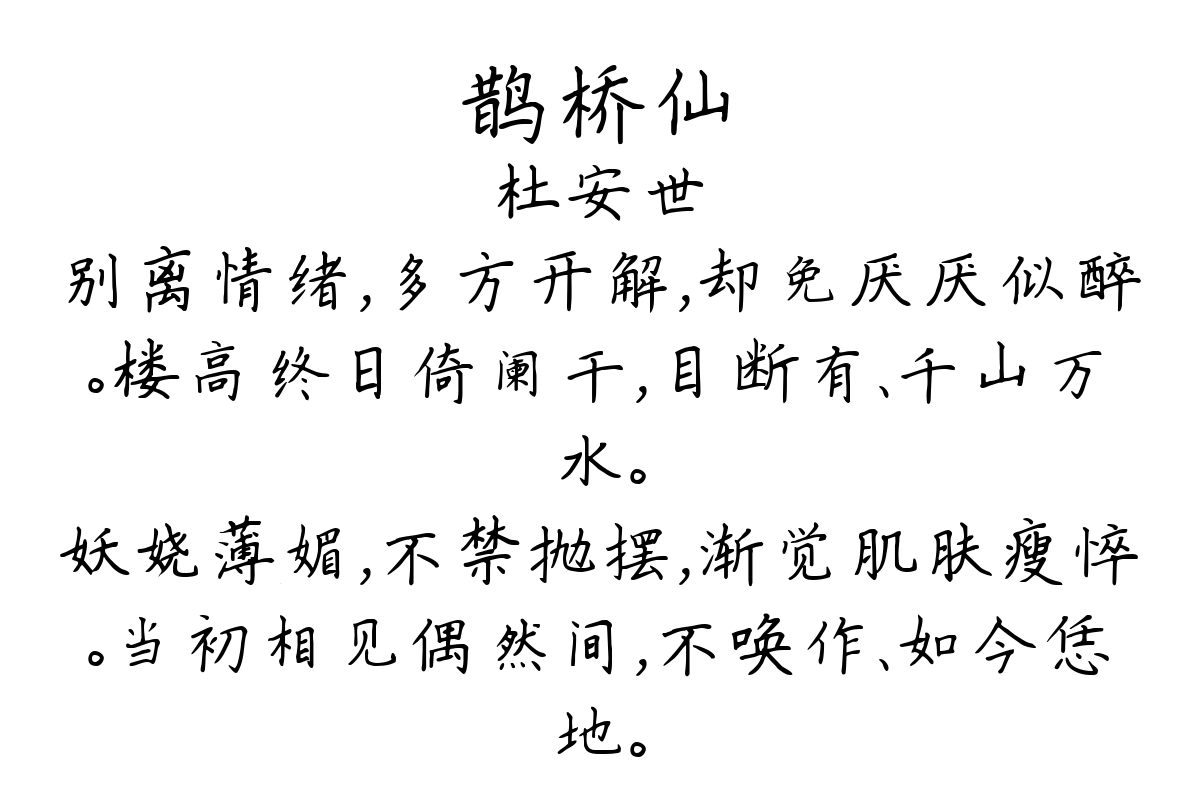 鹊桥仙
杜安世
别离情绪,多方开解,却免厌厌似醉
。楼高终日倚阑干,目断有、千山万
水。
妖娆薄媚,不禁抛摆,渐觉肌肤瘦悴
。当初相见偶然间,不唤作、如今恁
地。